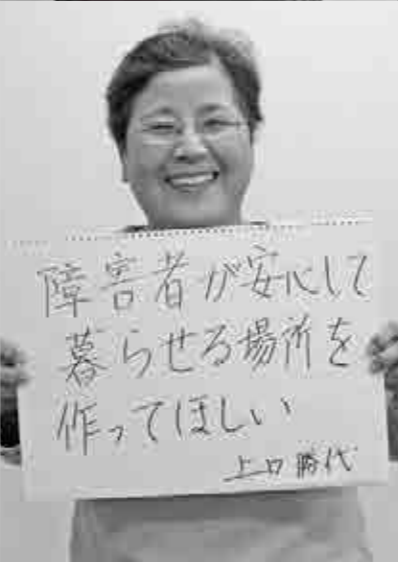 障害者が安心して
暮らせる場所を
作ってほしい
上口勝代